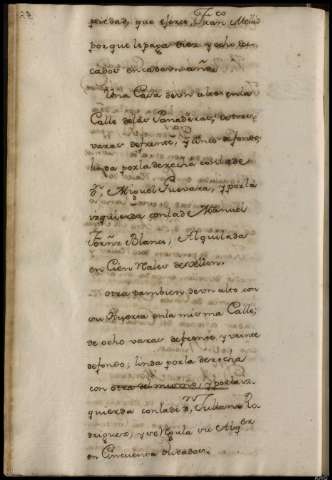 23
piedad, que ejerce, Fran.co Muñiz
por que le paga diez y ocho du-
cados en cada un año.
Una Casa de un alto en la
Calle de las Panaderas, de tres
varas de frente, y cinco de fondo,
linda por la derecha con la de
D.n Miguel Guevara, y por la
izquierda con la de Manuel
Blanco, Alquilada
en Cien Rales de Vellon
otra tambien de un alto con
su en la misma Calle,
de ocho varas de frente y veinte
de fondo; linda por la derecha
con otra del mismo, y por la iz-
quierda con la de D.n Juliana Ro-
driguez, y se regula su Alq.er
en Cincuenta ducados